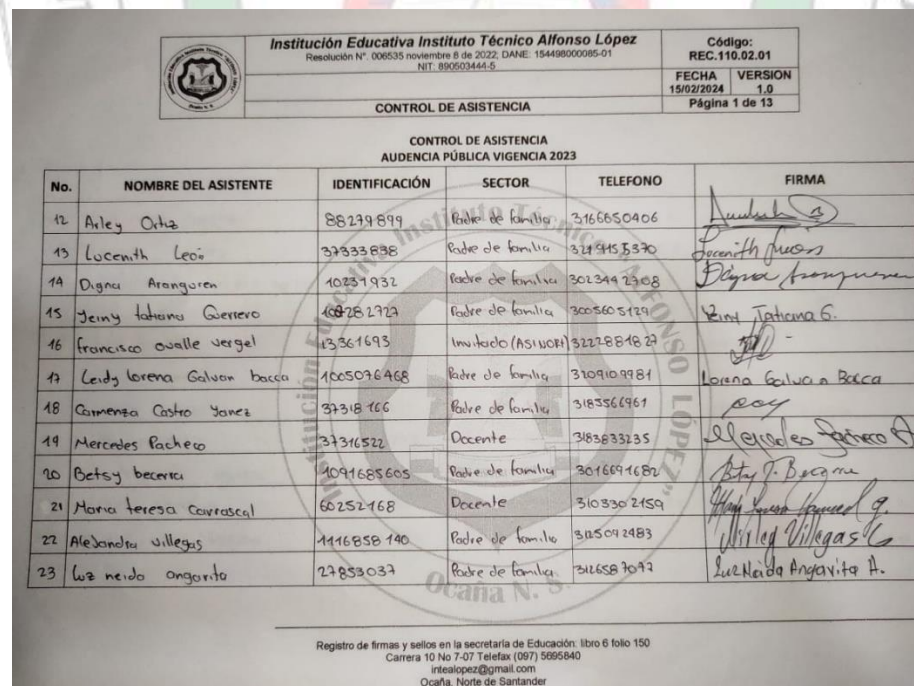 Institución Educativa Instituto Técnico Alfonso López
Resolución N°. 006535 noviembre 8 de 2022; DANE: 154498000085-01
NIT: 890503444-5
CONTROL DE ASISTENCIA
Código:
REC.110.02.01
FECHA VERSION
15/02/2024 1.0
Página 1 de 13
CONTROL DE ASISTENCIA
AUDENCIA PÚBLICA VIGENCIA 2023
No. NOMBRE DEL ASISTENTE IDENTIFICACIÓN SECTOR TELEFONO FIRMA
12 Arley Ortiz 88279899 Padre de familia 3166850406
13 Lucenith León 37333838 Padre de familia Lucenith León
14 Digna Aranguren 10231932 Padre de familia 3023442708 Digna Aranguren
15 Yeiny tatiana Guerrero Padre de familia 3005605129 Yeiny Tatiana G.
16 francisco ovalle vergel 13361693 Invitado (ASINORT) 3222881827
17 Leidy lorena Galvan bacca 1005076468 Padre de familia 3209109981 Lorena Galvan Bacca
18 Carmenza Castro Yanez 37318166 Padre de familia 3183566961
19 Mercedes Pacheco 37316522 Docente 3183833235 Mercedes Pacheco A
20 Betsy becerra 1091685605 Padre de familia 3016691682 Betsy J. Becerra
21 Maria teresa Carrascal 60252168 Docente 3103302159
22 Alejandra villegas 1116858140 Padre de familia 3125092483 Villegas
23 luz neida angarita 27853037 Padre de familia 3126587097 Luz Neida Angarita A.
Institución Educativa Instituto Técnico ALFONSO LÓPEZ"
Ocaña N. S.
Registro de firmas y sellos en la secretaría de Educación: libro 6 folio 150
Carrera 10 No 7-07 Telefax (097) 5695840
intealopez@gmail.com
Ocaña, Norte de Santander